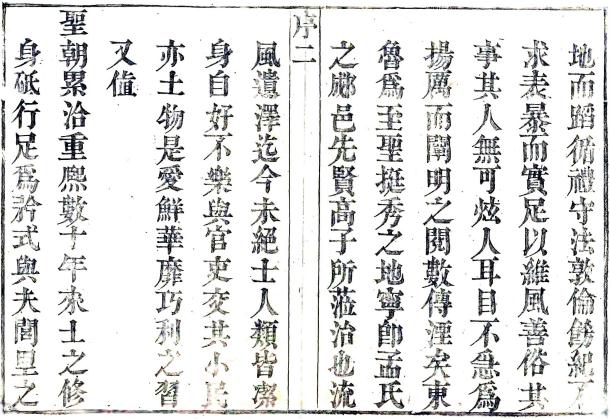 地而蹈循禮守法敦倫飭紀不
求表暴而實足以維風善俗其
事其人無可炫人耳目不急爲
揚厲而闡明之閱數傳湮矣東
魯爲至聖挺秀之地寧卽孟氏
之郕邑先賢高子所蒞治也流
序二
風遺澤迄今未絕士人類皆潔
身自好不樂與官吏交其小民
亦土物是愛鮮華靡巧利之習
又值
聖朝累洽重熙數十年來士之修
身砥行足爲矜式與夫閭里之